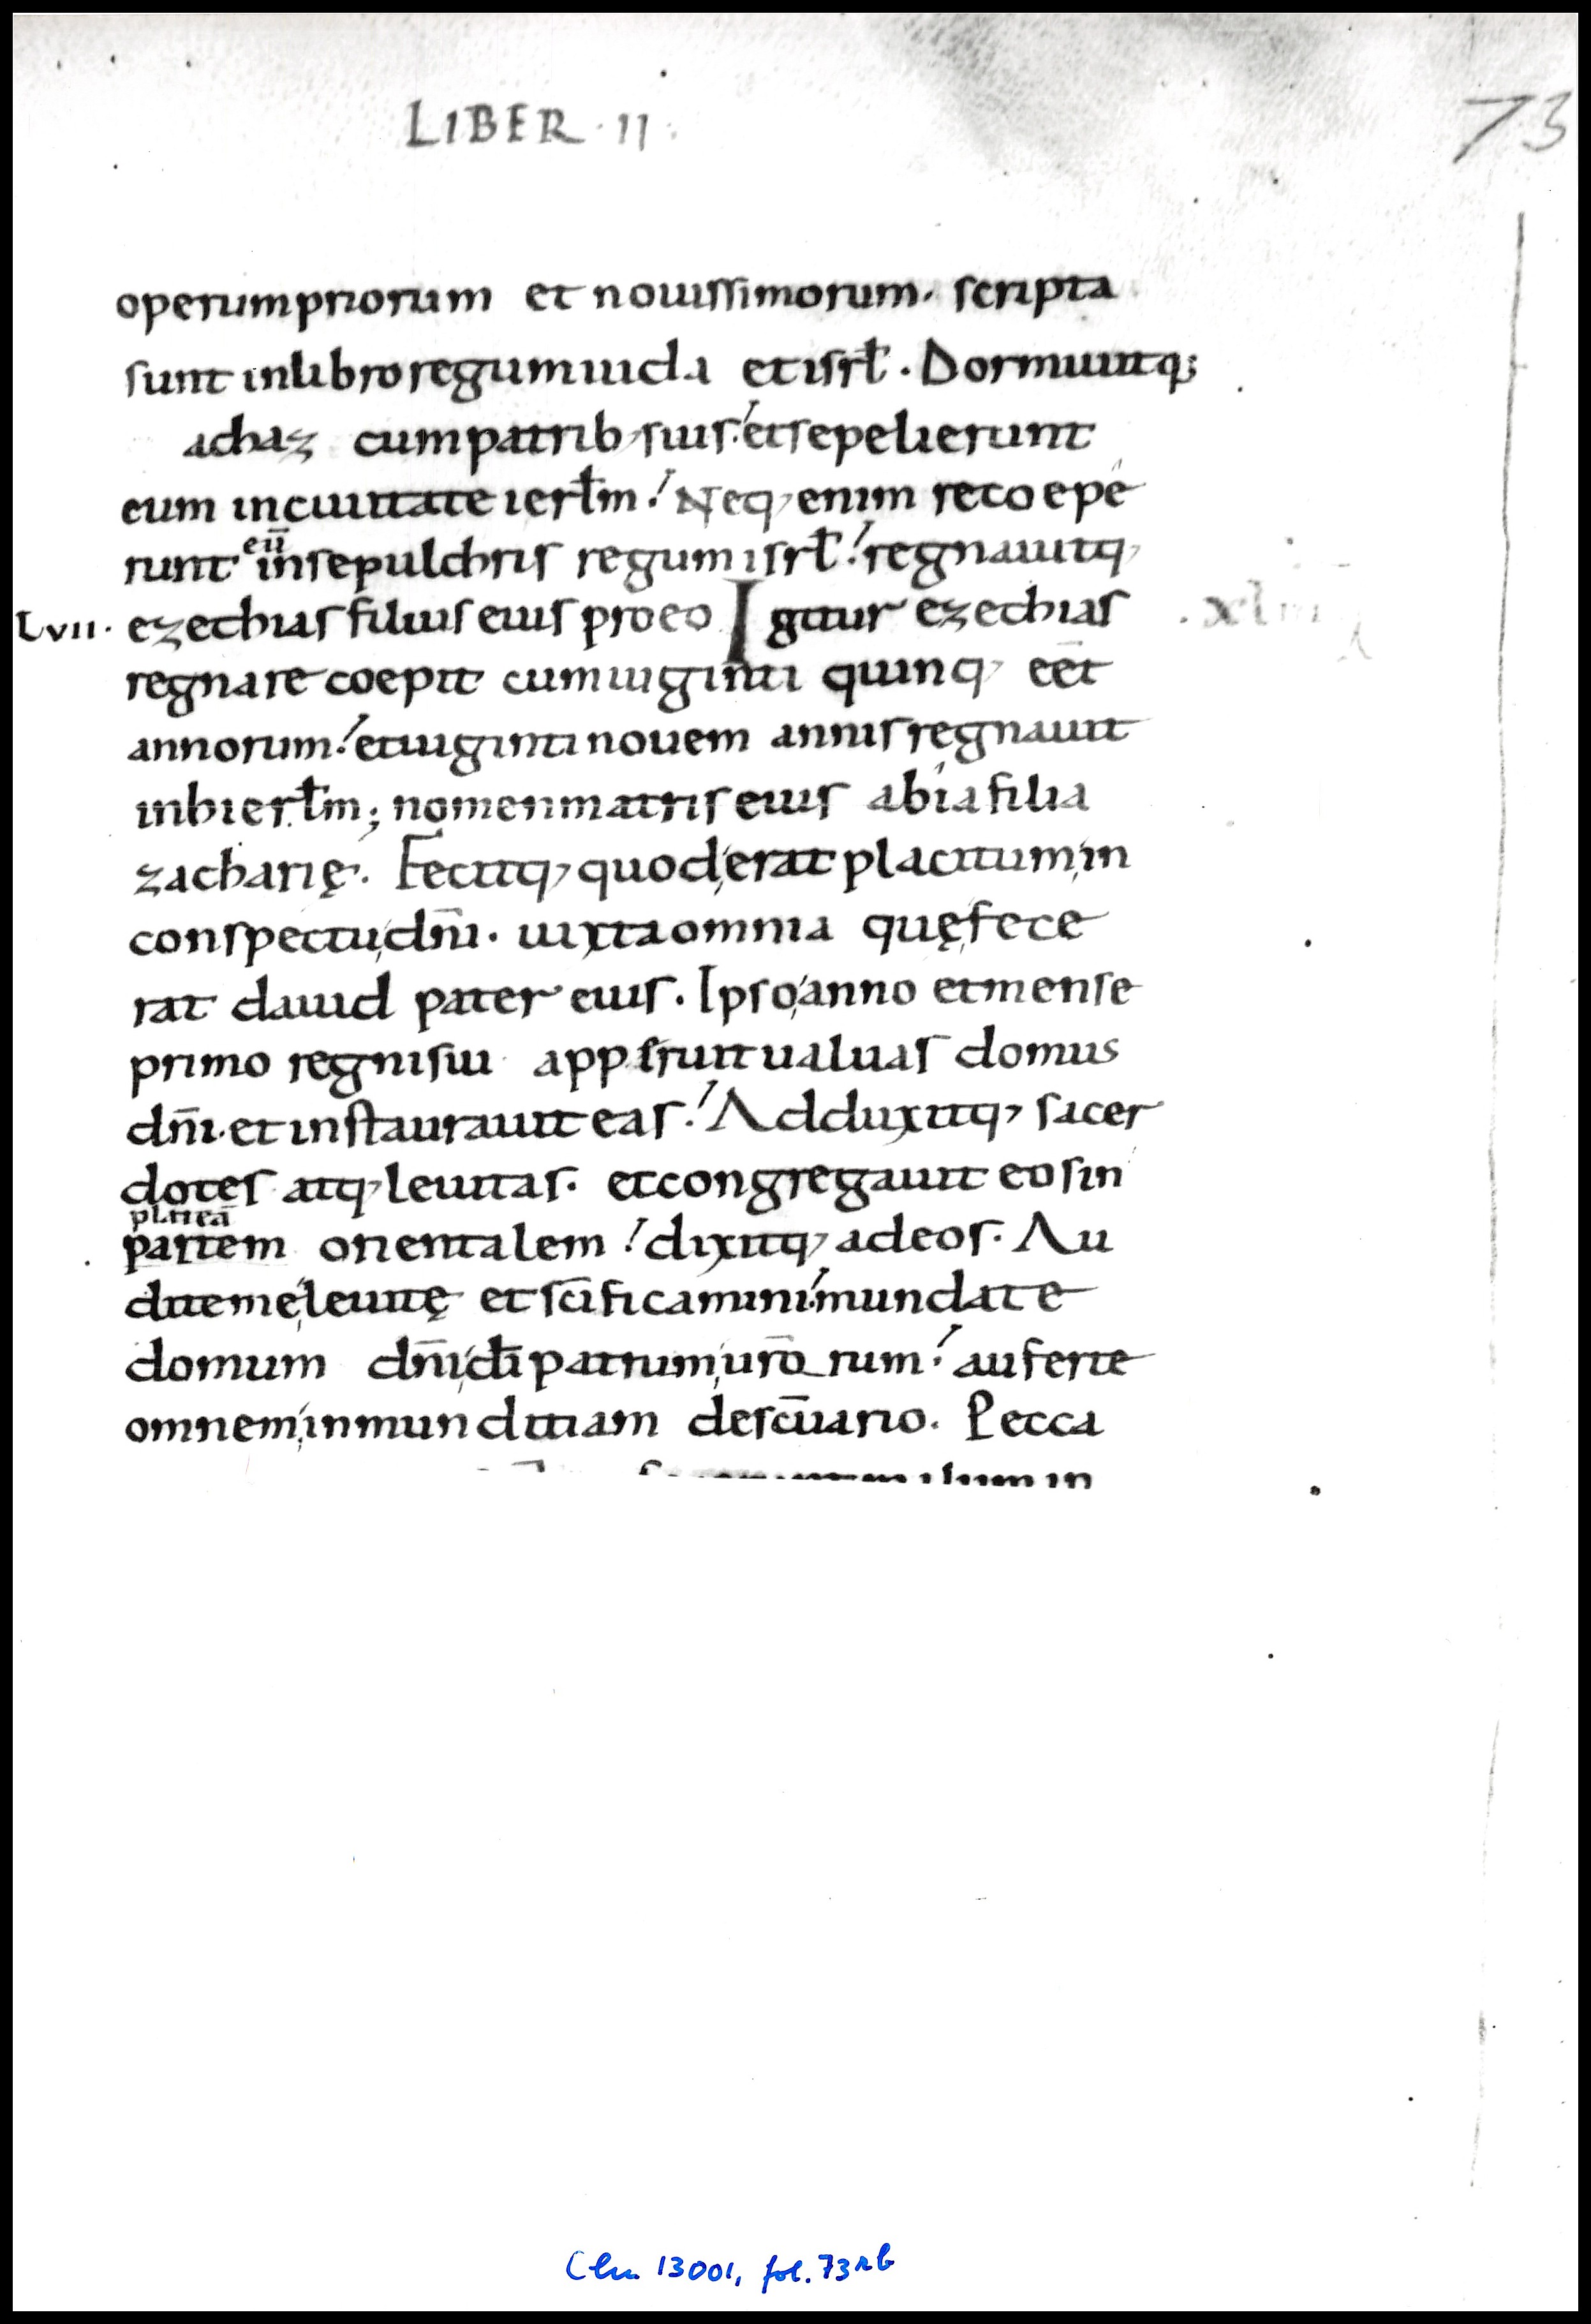 LIBER · II ·
73
operum priorum et nouissimorum. scripta
sunt in libro regum iuda et isrł. Dormiuitq;
achaz cum patrib, suis. et sepelierunt
eum in ciuitate ierłm. Neq, enim recoepe
eū
runt in sepulchris regum isrł. regnauitq,
Lvii · ezechias filius eius pro eo Igitur ezechias
regnare coepit cum uiginti quinq, eēt
annorum. et uiginti nouem annis regnauit
in hierłm; nomen matris eius abia filia
zacharię. Fecitq, quod erat placitum in
conspectu dn̄i. iuxta omnia quę fece
rat dauid pater eius. Ipso anno et mense
primo regni sui apperuit ualuas domus
dn̄i. et instaurauit eas. Adduxitq, sacer
dotes atq, leuitas. et congregauit eos in
plateā
partem orientalem. dixitq, ad eos. Au
dite me leuitę et sc̄ificamini. mundate
domum dn̄i dī patrum urō rum. auferte
omnem inmunditiam de sc̄uario. Pecca
Clm 13001, fol. 73rb